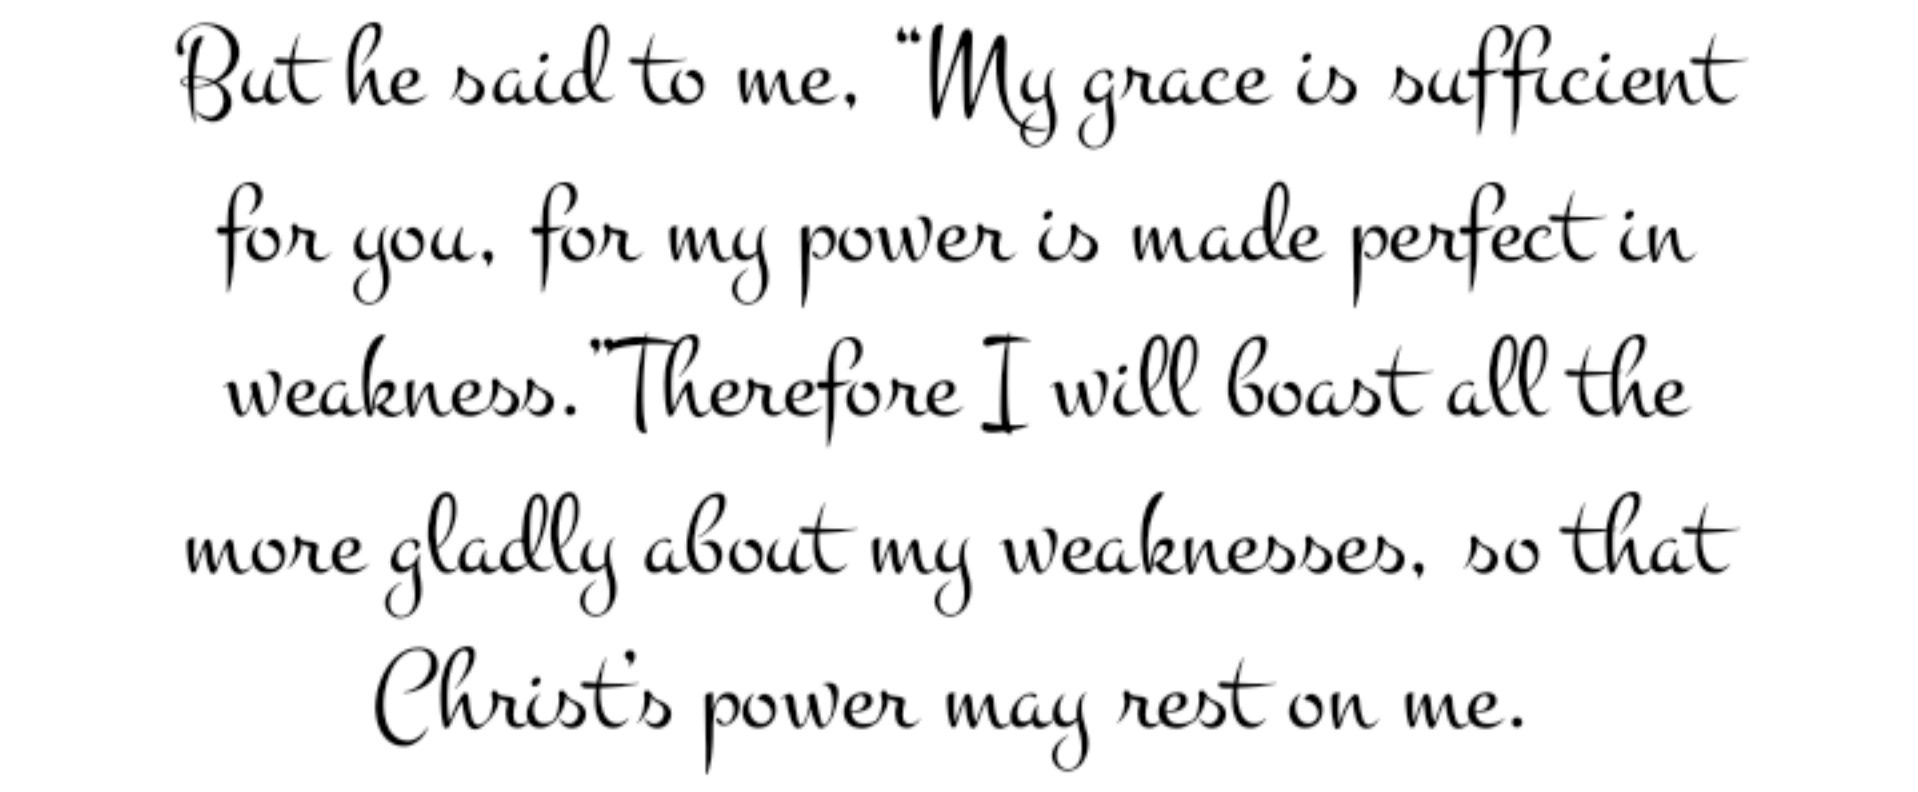 But he said to me, “My grace is sufficient
for you, for my power is made perfect in
weakness.”Therefore I will boast all the
more gladly about my weaknesses, so that
Christ’s power may rest on me.